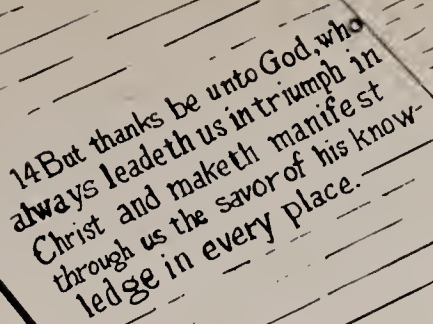 14 But thanks be unto God, who
always leadeth us in triumph in
Christ and maketh manifest
through us the savor of his know-
ledge in every place.